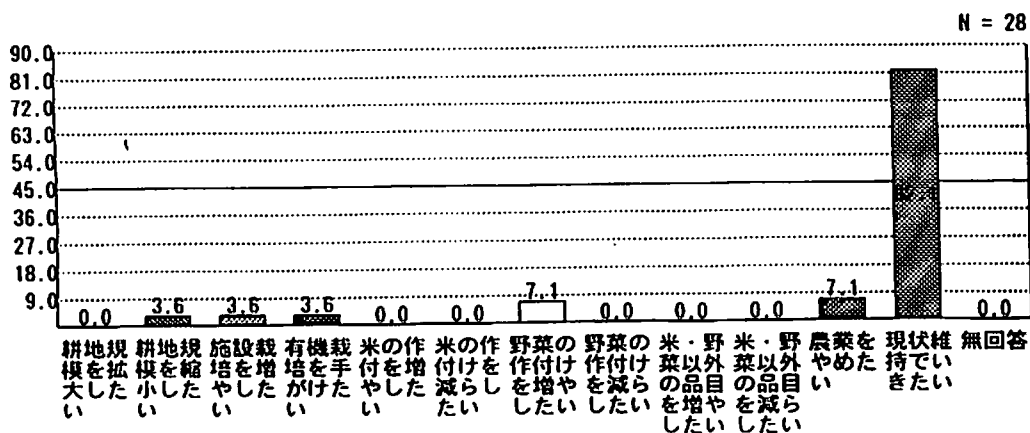 N = 28
90.0
81.0
72.0
63.0
54.0
45.0
36.0
27.0
18.0
9.0
0.0
3.6
3.6
3.6
0.0
0.0
7.1
0.0
0.0
0.0
7.1
0.0
耕地規模を拡大したい
耕地規模を縮小したい
施設栽培を増やしたい
有機栽培を手がけたい
米の作付を増やしたい
米の作付けを減らしたい
野菜の作付けを増やしたい
野菜の作付けを減らしたい
米・野菜以外の品目を増やしたい
米・野菜以外の品目を減らしたい
農業をやめたい
現状維持でいきたい
無回答